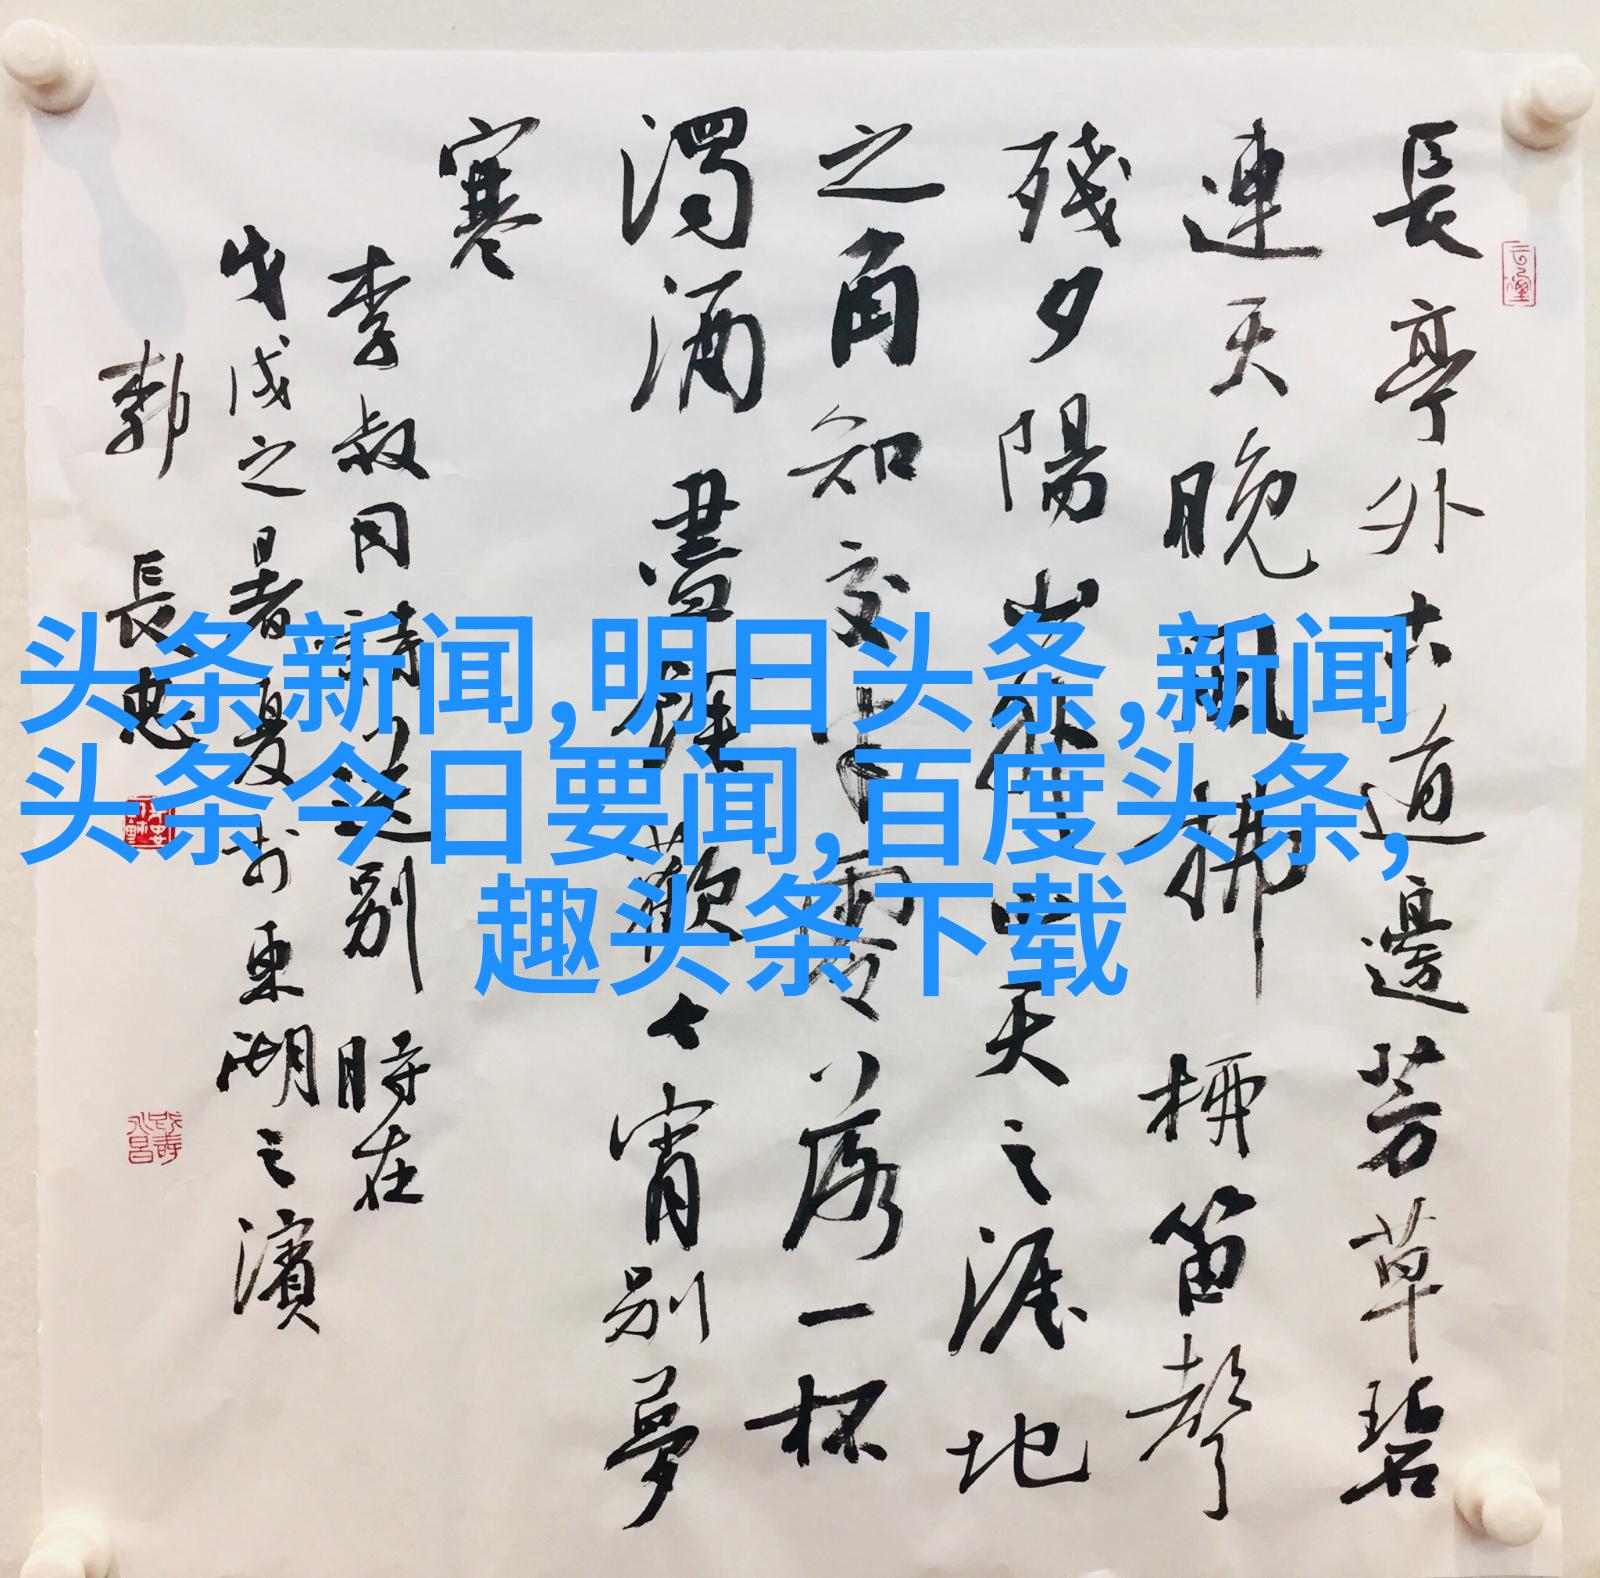 長亭外古道邊芳草碧
連天晚風拂柳笛聲
殘夕陽山外山天之涯地
之角知交半零落一杯
濁酒盡餘歡今宵別夢
寒
李叔同詩送別 時在
戊戌之暑夏於東湖之濱
郭長忠
头条新闻,明日头条,新闻
头条今日要闻,百度头条,
趣头条下载